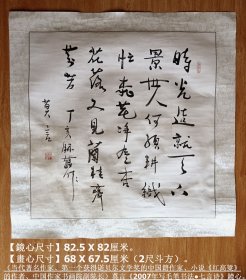 時光造就
景世人何須耕織
忙棗花尽杏
花落又見蘭桂齊
芬芳 丁亥
莫言
【鏡心尺寸】82.5 X 82厘米。
【畫心尺寸】68 X 67.5厘米（2尺斗方）。
（当代著名作家、第一个获得诺贝尔文学奖的中国籍作家、小说《红高粱》
的作者、中国作家书画院副院长）莫言（2007年写毛笔书法●七言诗）镜心